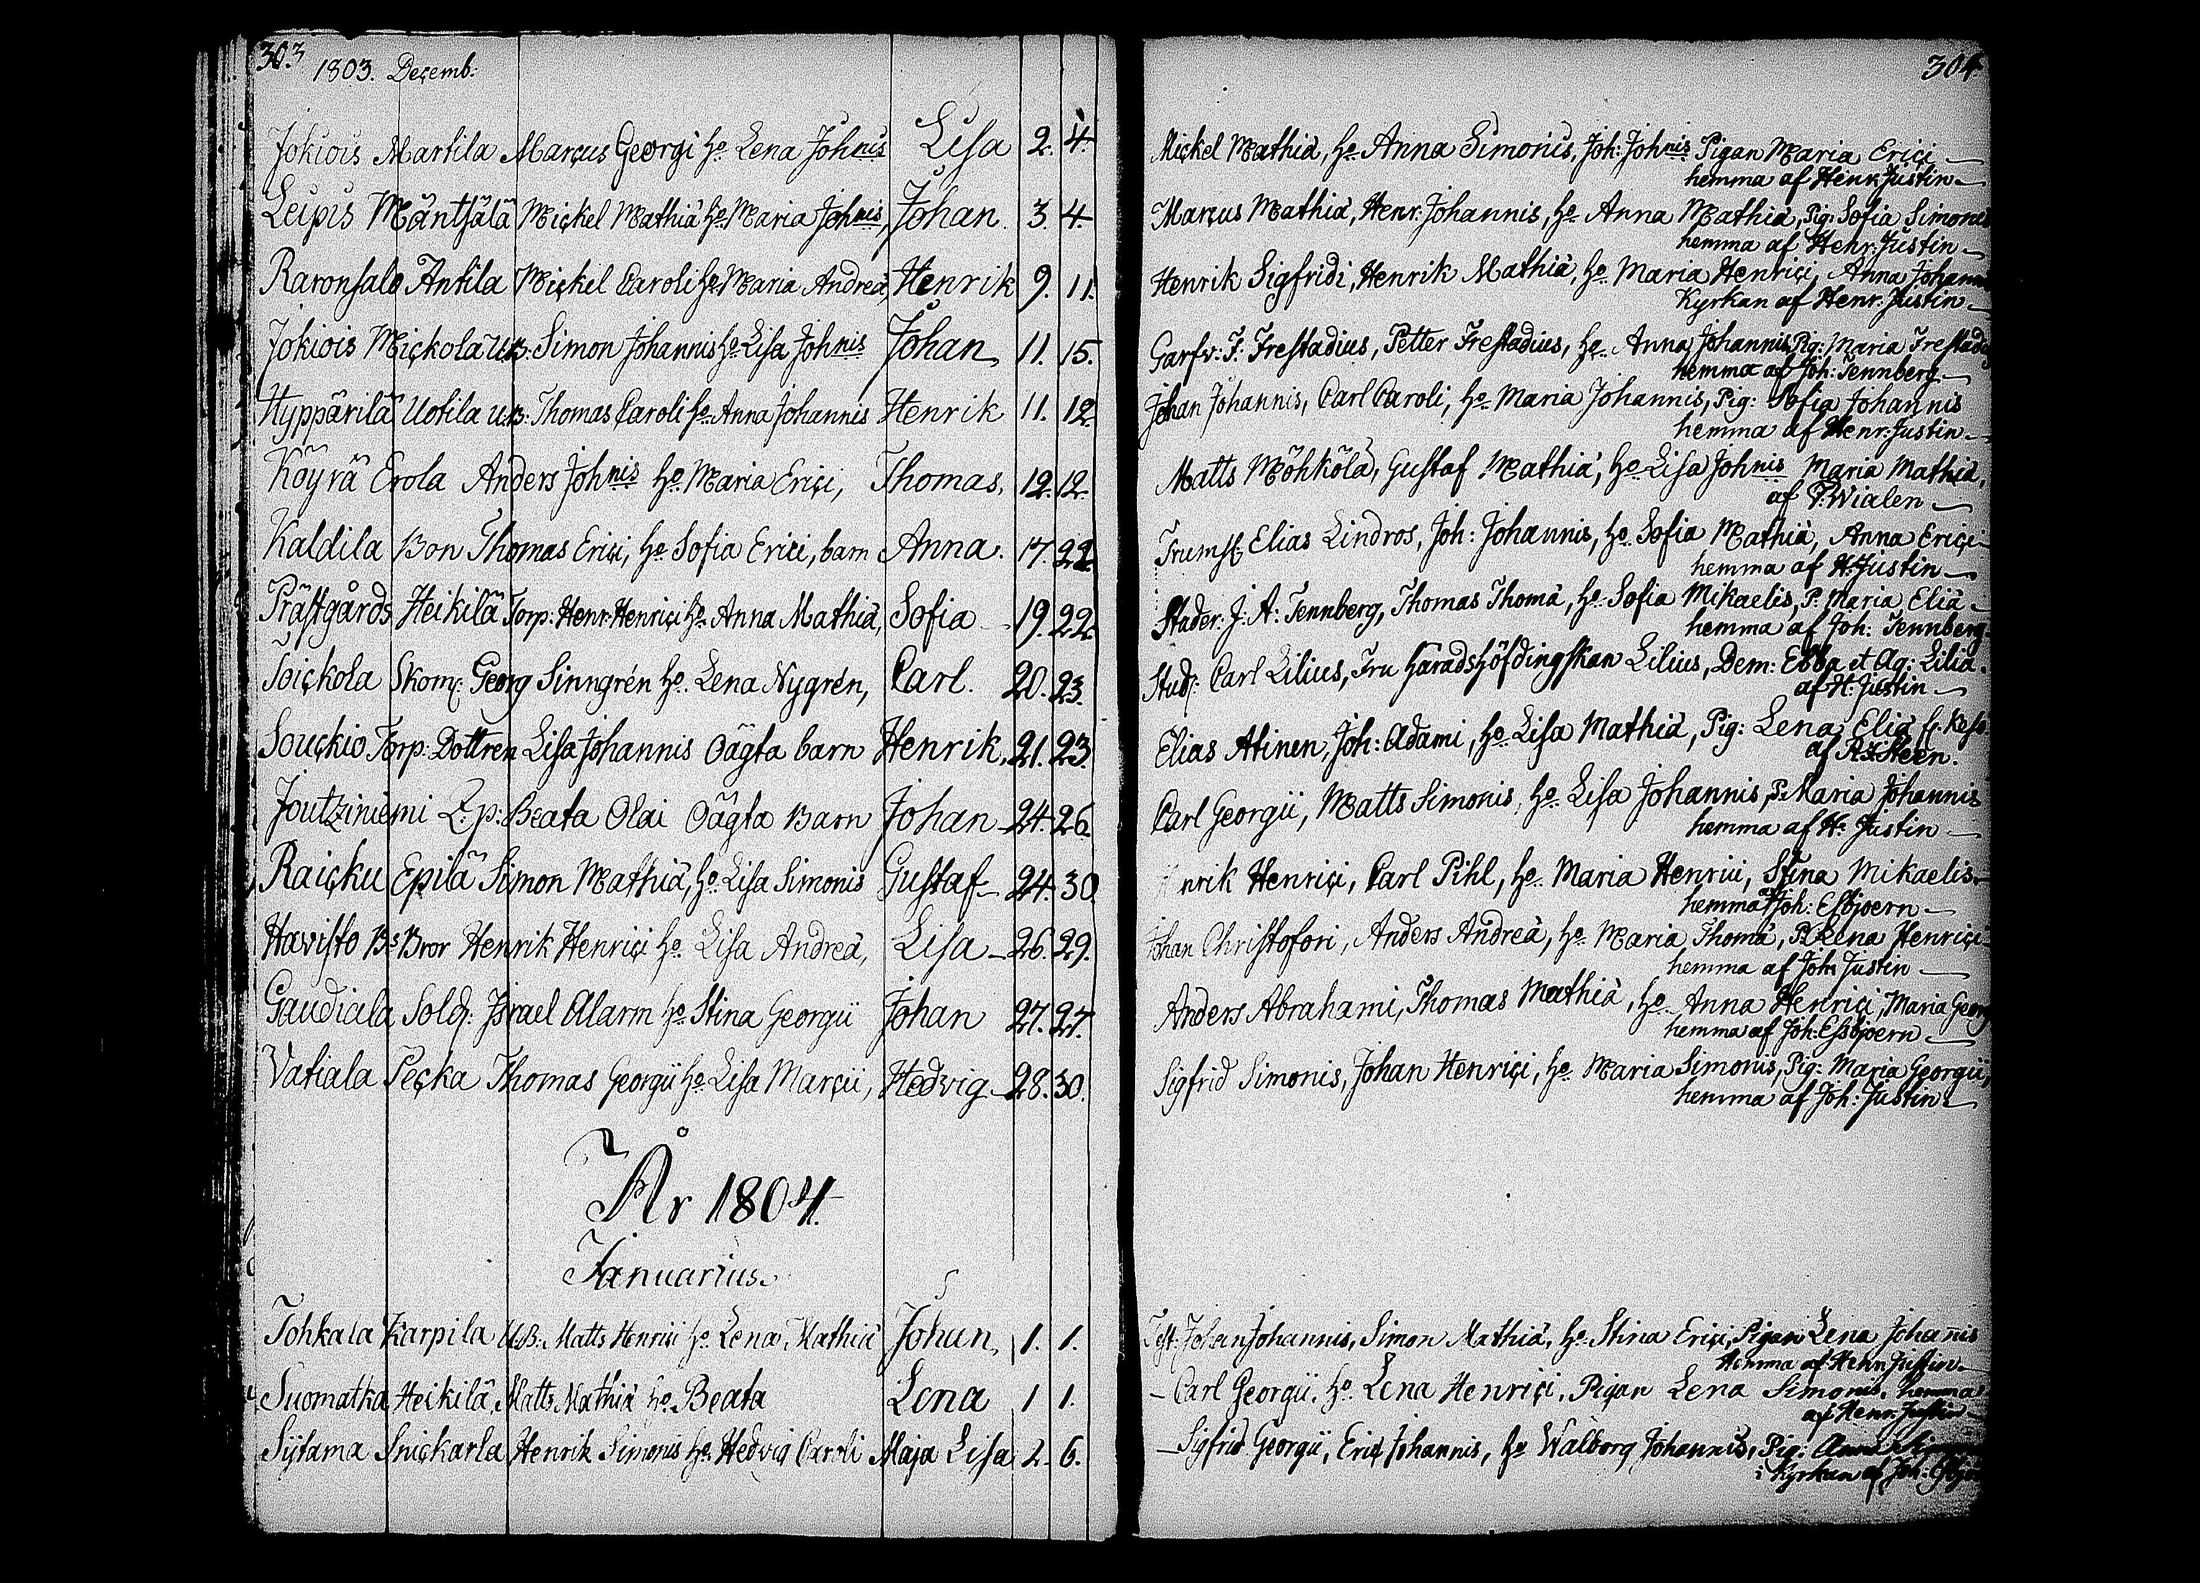 303
1803. Decemb:
Jokiois Martila Marcus Georgi ho Lena Johnis Lisa 2. 4.
Leipis Mäntsälä Mickel Mathiä ho Maria Johnis, Johan. 3. 4.
Raronsalo Antila Mickel Caroli ho Maria Andreä, Henrik 9. 11.
Jokiois Mickola U.B: Simon Johannis ho Lisa Johnis Johan 11. 15.
Hyppärilä Uotila U.B: Thomas Caroli ho Anna Johannis Henrik 11. 12.
Köyrä Erola Anders Johnis ho Maria Erici, Thomas, 12. 12.
Kaldila Bon Thomas Erici, ho Sofia Erici, barn Anna. 17. 22.
Prästgårds Heikilä Torp: Henr: Henrici ho Anna Mathiä, Sofia 19. 22.
Toickola Skom: Georg Sinngrén ho. Lena Nygrén, Carl. 20. 23.
Souckio Torp: Dottren Lisa Johannis Oägta barn Henrik, 21. 23.
Joutziniemi Beata Olai Oägta Barn Johan 24. 26.
Raicku Epilä Simon Mathiä, ho Lisa Simonis Gustaf 24. 30
Havisto Bs Bror Henrik Henrici ho Lisa Andreä, Lisa 26. 29.
Gaudiala Sold: Israel Alarm ho Stina Georgii Johan 27. 27.
Vatiala Pecka Thomas Georgii ho Lisa Marcii, Hedvig 28. 30.
År 1804.
Januarius.
Tohkala Karpila U.B: Matts Henrici ho Lena Mathiä Johan, 1. 1.
Suomatka Heikilä Matts Mathiä ho Beata Lena 1 1.
Sytama Snickarla Henrik Simonis ho Hedvig Caroli Maja Lisa 2. 6.
304
Mickel Mathiä, ho Anna Simonis, Joh: Johnis Pigan Maria Erici
hemma af Henr Justin
Marcus Mathiä, Henr: Johannis, ho Anna Mathiä, Pig: Sofia Simonis
hemma af Henr: Justin
Henrik Sigfridi, Henrik Mathiä, ho Maria Henrici, Anna
Kyrkan af Henr: Justin
Garfv: F: Frestadius, Petter Frestadius, ho Anna Johannis, Pig: Maria
hemma af Joh: Tennberg
Johan Johannis, Carl Caroli, ho Maria Johannis, Pig: Sofia Johannis
hemma af Henr: Justin
Matts Möhkölä, Gustaf Mathiä, ho Lisa Johnis Maria Mathiä,
af P: Wialen
Trumsl: Elias Lindros, Joh: Johannis, ho Sofia Mathiä, Anna Erici
hemma af H: Justin
Stader: J: A: Tennberg, Thomas Thomä, ho Sofia Mikaelis, P. Maria Eliä
hemma af Joh: Tennberg
Stud: Carl Lilius, Fru Häradshöfdingskan Lilius, Dem: Ebba et Ag: Lilia.
af H: Justin
Elias Atinen, Joh: Adami, ho Lisa Mathiä, Pig: Lena Eliä
af
Carl Georgii, Matts Simonis, ho Lisa Johannis, P. Maria Johannis
hemma af H: Justin
nrik Henrici, Carl Pihl, ho Maria Henrici, Stina Mikaelis
hemma af Joh: Esbjoern
Johan Christofori, Anders Andreä, ho Maria Thomä, P. Lena Henrici
hemma af Joh Justin
Anders Abrahami, Thomas Mathiä, ho Anna Henrici, Maria Georg
hemma af Joh: Esbjoern
Sigfrid Simonis, Johan Henrici, ho Maria Simonis, Pig: Maria Georgii,
hemma af Joh: Justin
Johan Johannis, Simon Mathiä, ho Stina Erici, Pigan Lena Johanis
hemma af Henr Justin
Carl Georgii, ho Lena Henrici, Pigan Lena Simonis, hemma
af Henr: Justin
Sigfrid Georgii, Eric Johannis, ho Walborg Johannis, Pig: Anna
i Kyrkan af Joh: